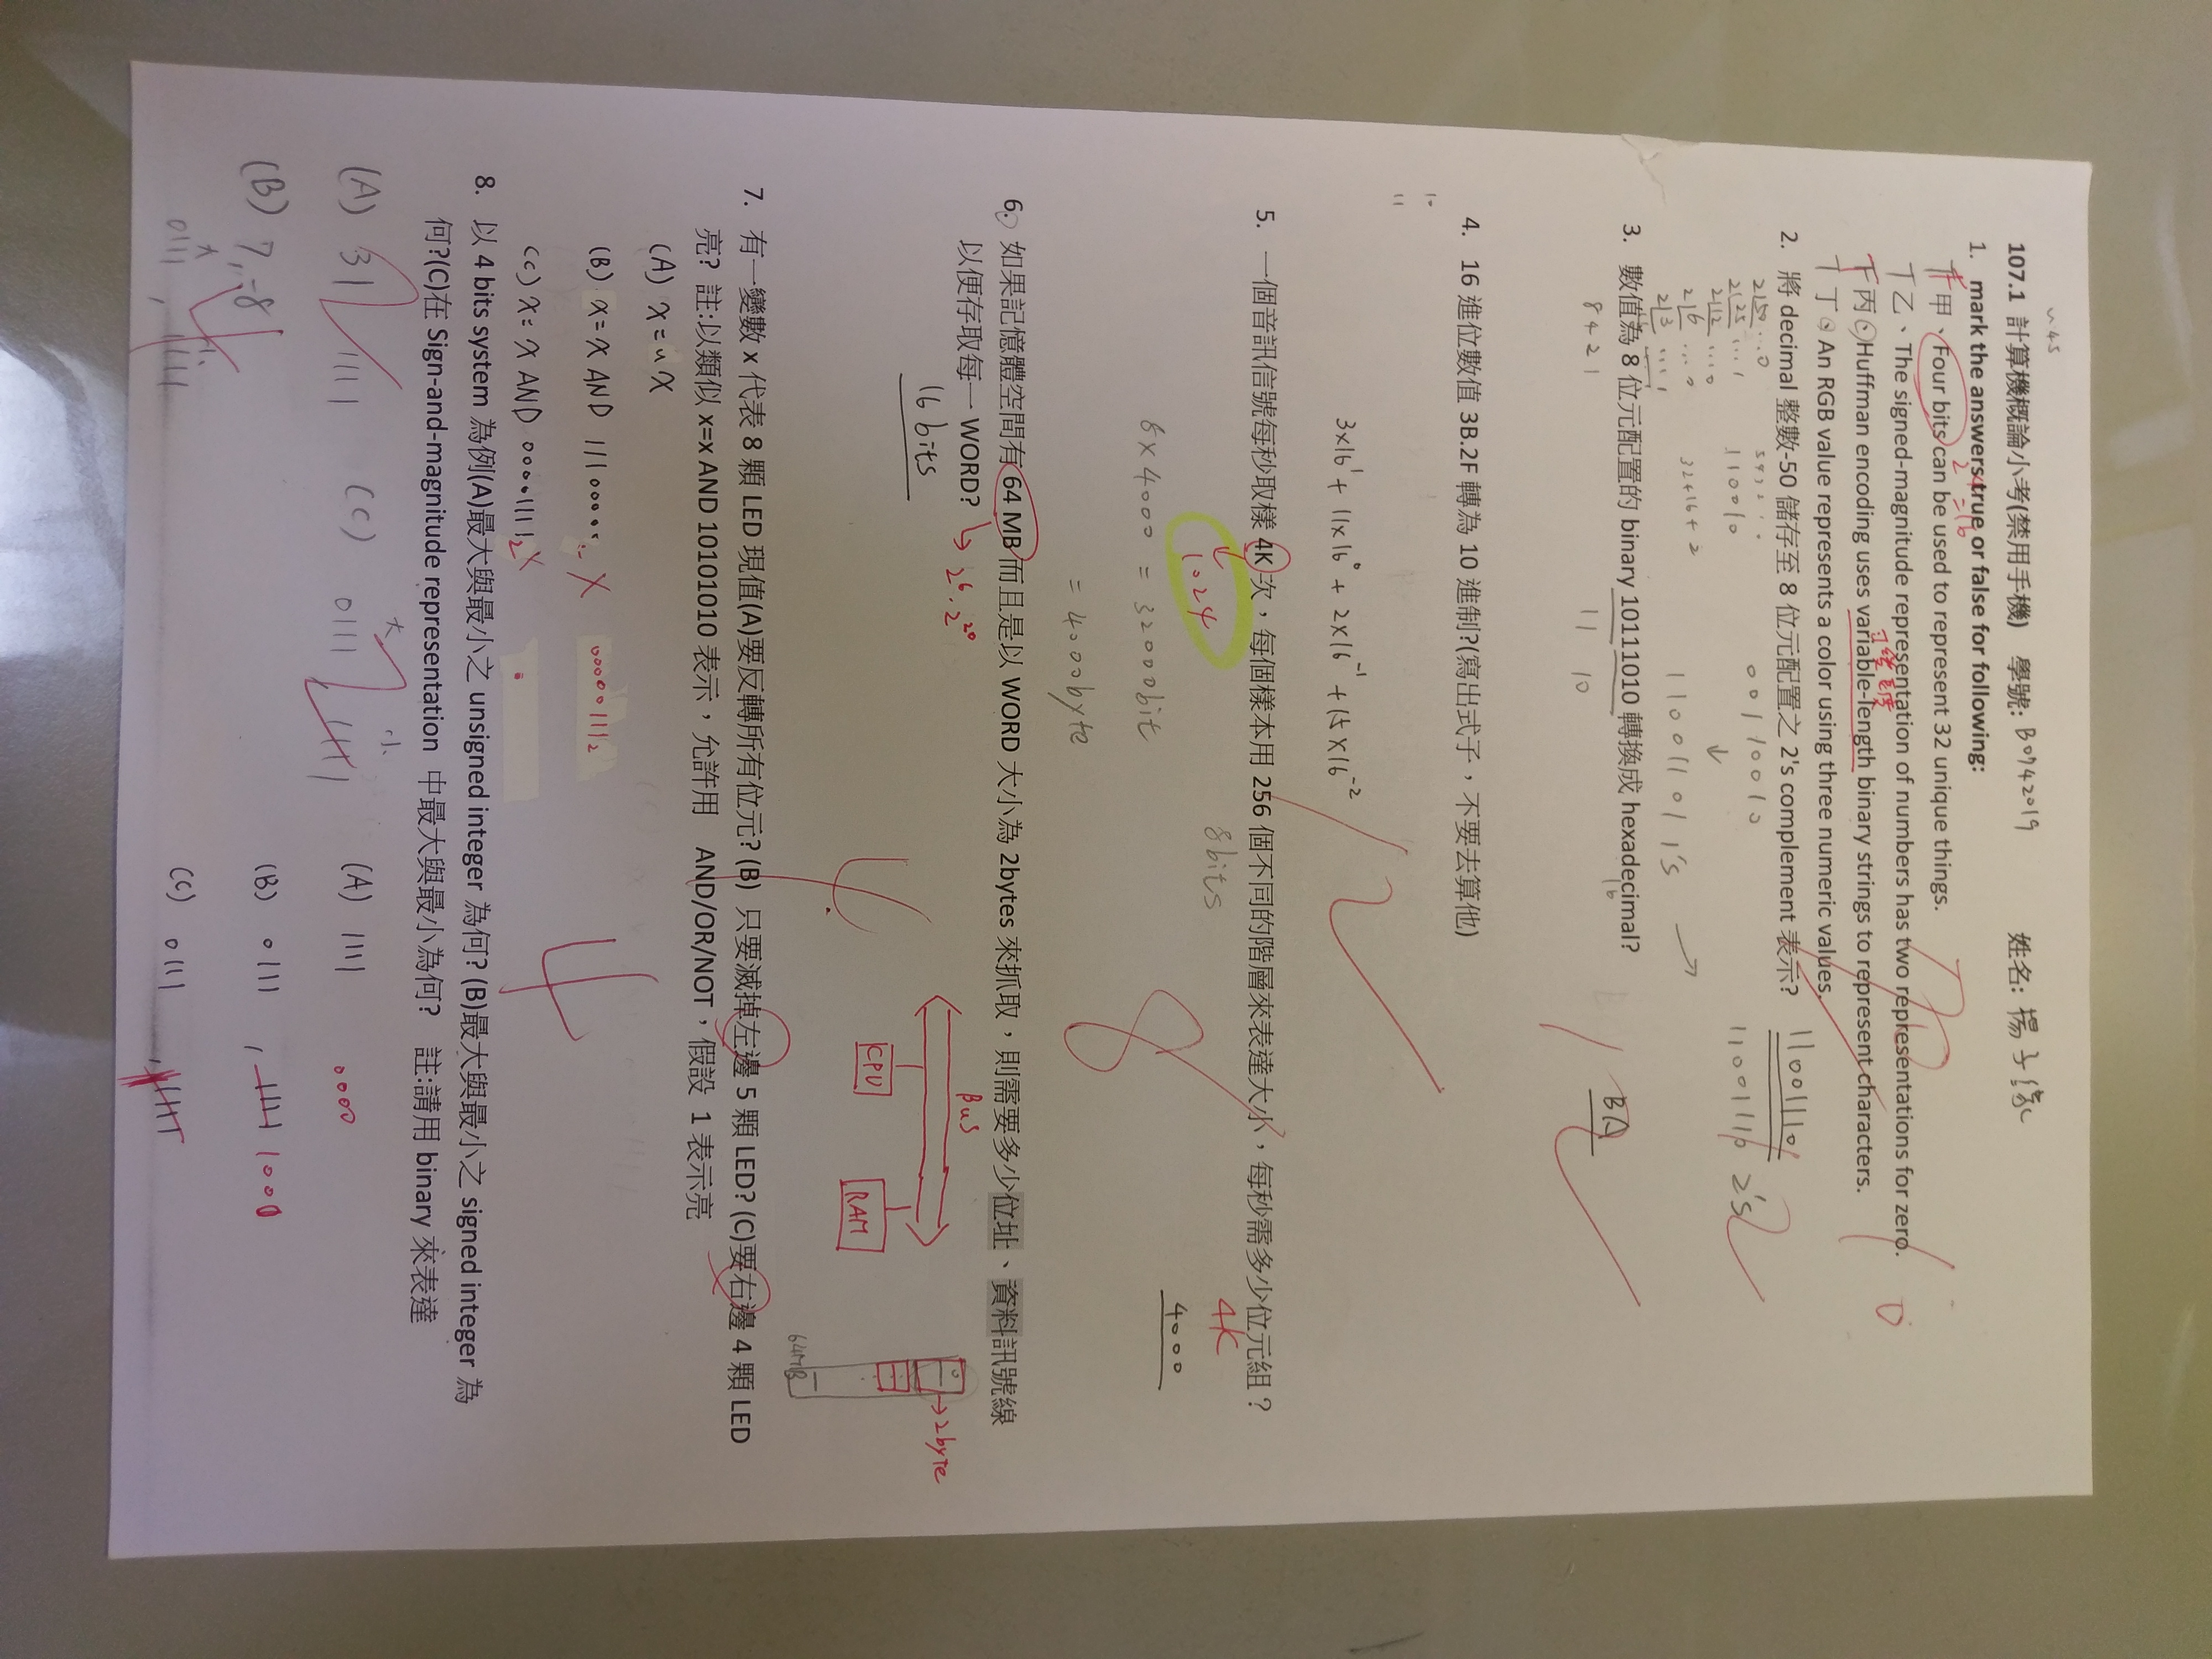 ~45
107.1 計算機概論小考(禁用手機) 學號: B0742019 姓名: 楊子緣
1. mark the answers true or false for following:
2⁴=16
甲、Four bits can be used to represent 32 unique things.
T 乙、The signed-magnitude representation of numbers has two representations for zero.
可變長度
丙、Huffman encoding uses variable-length binary strings to represent characters.
T 丁、An RGB value represents a color using three numeric values.
10
2. 將 decimal 整數-50 儲存至 8 位元配置之 2's complement 表示? 11001110
2|50 ...0 00110010 11001110 2's
2|25 ...1 110010 ↓
2|12 ...0
2|6 ...0 32+16+2 11001101 1's →
2|3 ....1
3. 數值為 8 位元配置的 binary 10111010 轉換成 hexadecimal? BA
16
8421 11 10
4. 16 進位數值 3B.2F 轉為 10 進制?(寫出式子，不要去算他)
10
11
3×16¹ + 11×16⁰ + 2×16⁻¹ + 15×16⁻²
5. 一個音訊信號每秒取樣 4K 次，每個樣本用 256 個不同的階層來表達大小，每秒需多少位元組？
1024 8bits 8 4K
4000
8×4000 = 32000bit
= 4000byte
6. 如果記憶體空間有 64 MB 而且是以 WORD 大小為 2bytes 來抓取，則需要多少位址、資料訊號線
以便存取每一 WORD? 2⁶·2²⁰
Bus
16 bits
→2byte
CPU RAM
4
64MB
7. 有一變數 x 代表 8 顆 LED 現值(A)要反轉所有位元? (B) 只要滅掉左邊 5 顆 LED? (C)要右邊 4 顆 LED
亮? 註:以類似 x=x AND 10101010 表示，允許用 AND/OR/NOT，假設 1 表示亮
(A) x=~x
(B) x=x AND 11100000₂ X 00000111₂
4
(C) x=x AND 00001111₂ X
8. 以 4 bits system 為例(A)最大與最小之 unsigned integer 為何? (B)最大與最小之 signed integer 為
何?(C)在 Sign-and-magnitude representation 中最大與最小為何? 註:請用 binary 來表達
大 小
(A) 31 1111 (C) 0111 1111 (A) 1111 0000
(B) 7, -8 (B) 0111 , 1111 1000
大 小
0111 , 1111 (C) 0111 , 1111